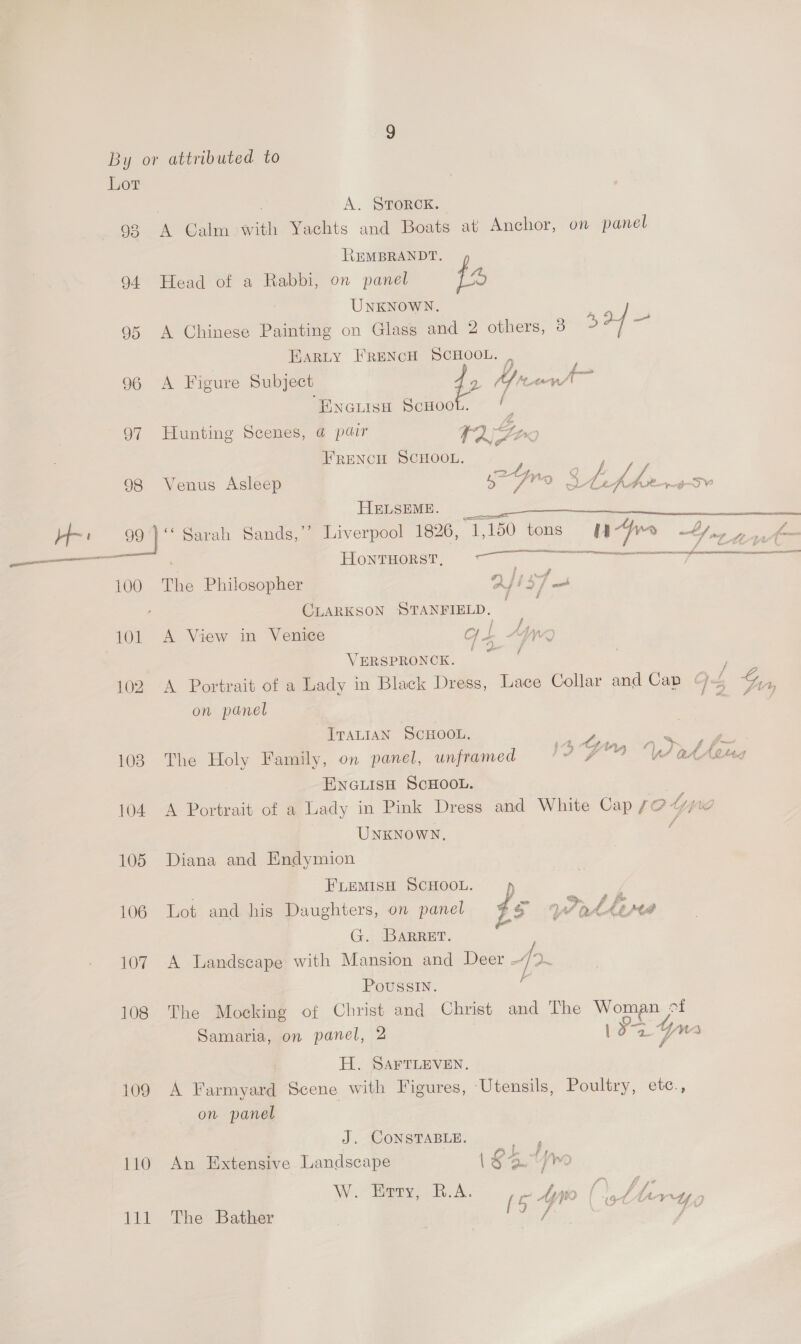 9
By or attributed to
Lot
A. Storck.
93 A Calm with Yachts and Boats at Anchor, on panel
Rembrandt.
94 Head of a Rabbi, on panel
Unknown.
95 A Chinese Painting on Glass and 2 others, 3
Early French School.
96 A Figure Subject
English School.
97 Hunting Scenes, a pair
French School.
98 Venus Asleep
Helseme.
99 “ Sarah Sands,” Liverpool 1826, 1,150 tons
Honthorst,
100 The Philosopher
Clarkson Stanfield.
101 A View in Venice
Verspronck.
102 A Portrait of a Lady in Black Dress, Lace Collar and Cap
on panel
Italian School.
103 The Holy Family, on panel, unframed
English School.
104 A Portrait of a Lady in Pink Dress and White Cap
Unknown.
105 Diana and Endymion
Flemish School.
106 Lot and his Daughters, on panel
G. Barret.
107 A Landscape with Mansion and Deer
Poussin.
108 The Mocking of Christ and Christ and The Woman of
Samaria, on panel, 2
H. Saftleven.
109 A Farmyard Scene with Figures, Utensils, Poultry, etc.,
on panel
J. Constable.
110 An Extensive Landscape
W. Etty, R.A.
111 The Bather